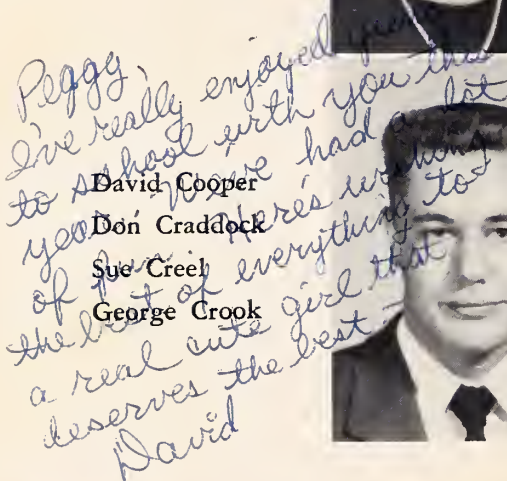 Peggy,
I've really enjoyed going
to school with you this
year. We've had a lot
of fun. Here's wishing
the best of everything to
a real cute girl that
deserves the best –
David
David Cooper
Don Craddock
Sue Creel
George Crook